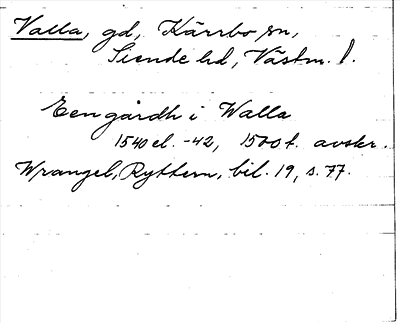 Valla, gd, Kärrbo sn,
Siende hd, Västm. l.
Een gårdh i Walla
1540 el. -42, 1500t. avskr.
Wrangel, Ryttern, bil. 19, s. 77.